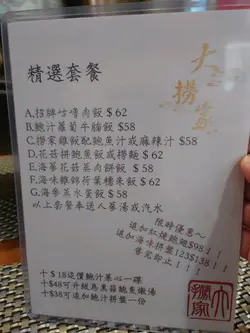 精選套餐
大撈家
A.招牌咕嚕肉飯 $62
B.鮑汁蘿蔔牛腩飯 $58
C.撈家雞飯配鮑魚汁或麻辣汁 $58
D.花菇拼鮑魚飯或撈麵 $62
E.海參花菇蒸肉餅飯 $58
F.海味雞錦荷葉糯米飯 $62
G.海參蒸水蛋飯 $58
以上套餐奉送人蔘湯或汽水
限時優惠~
追加紅燒鮑翅$98!!
追加海味拼盤123$138!!
售完即止!!!
十 $18追價鮑汁菜心一碟
十$48可升級烏黑蒜鮑魚燉湯
十$38可追加鮑汁拼盤一份
大撈家